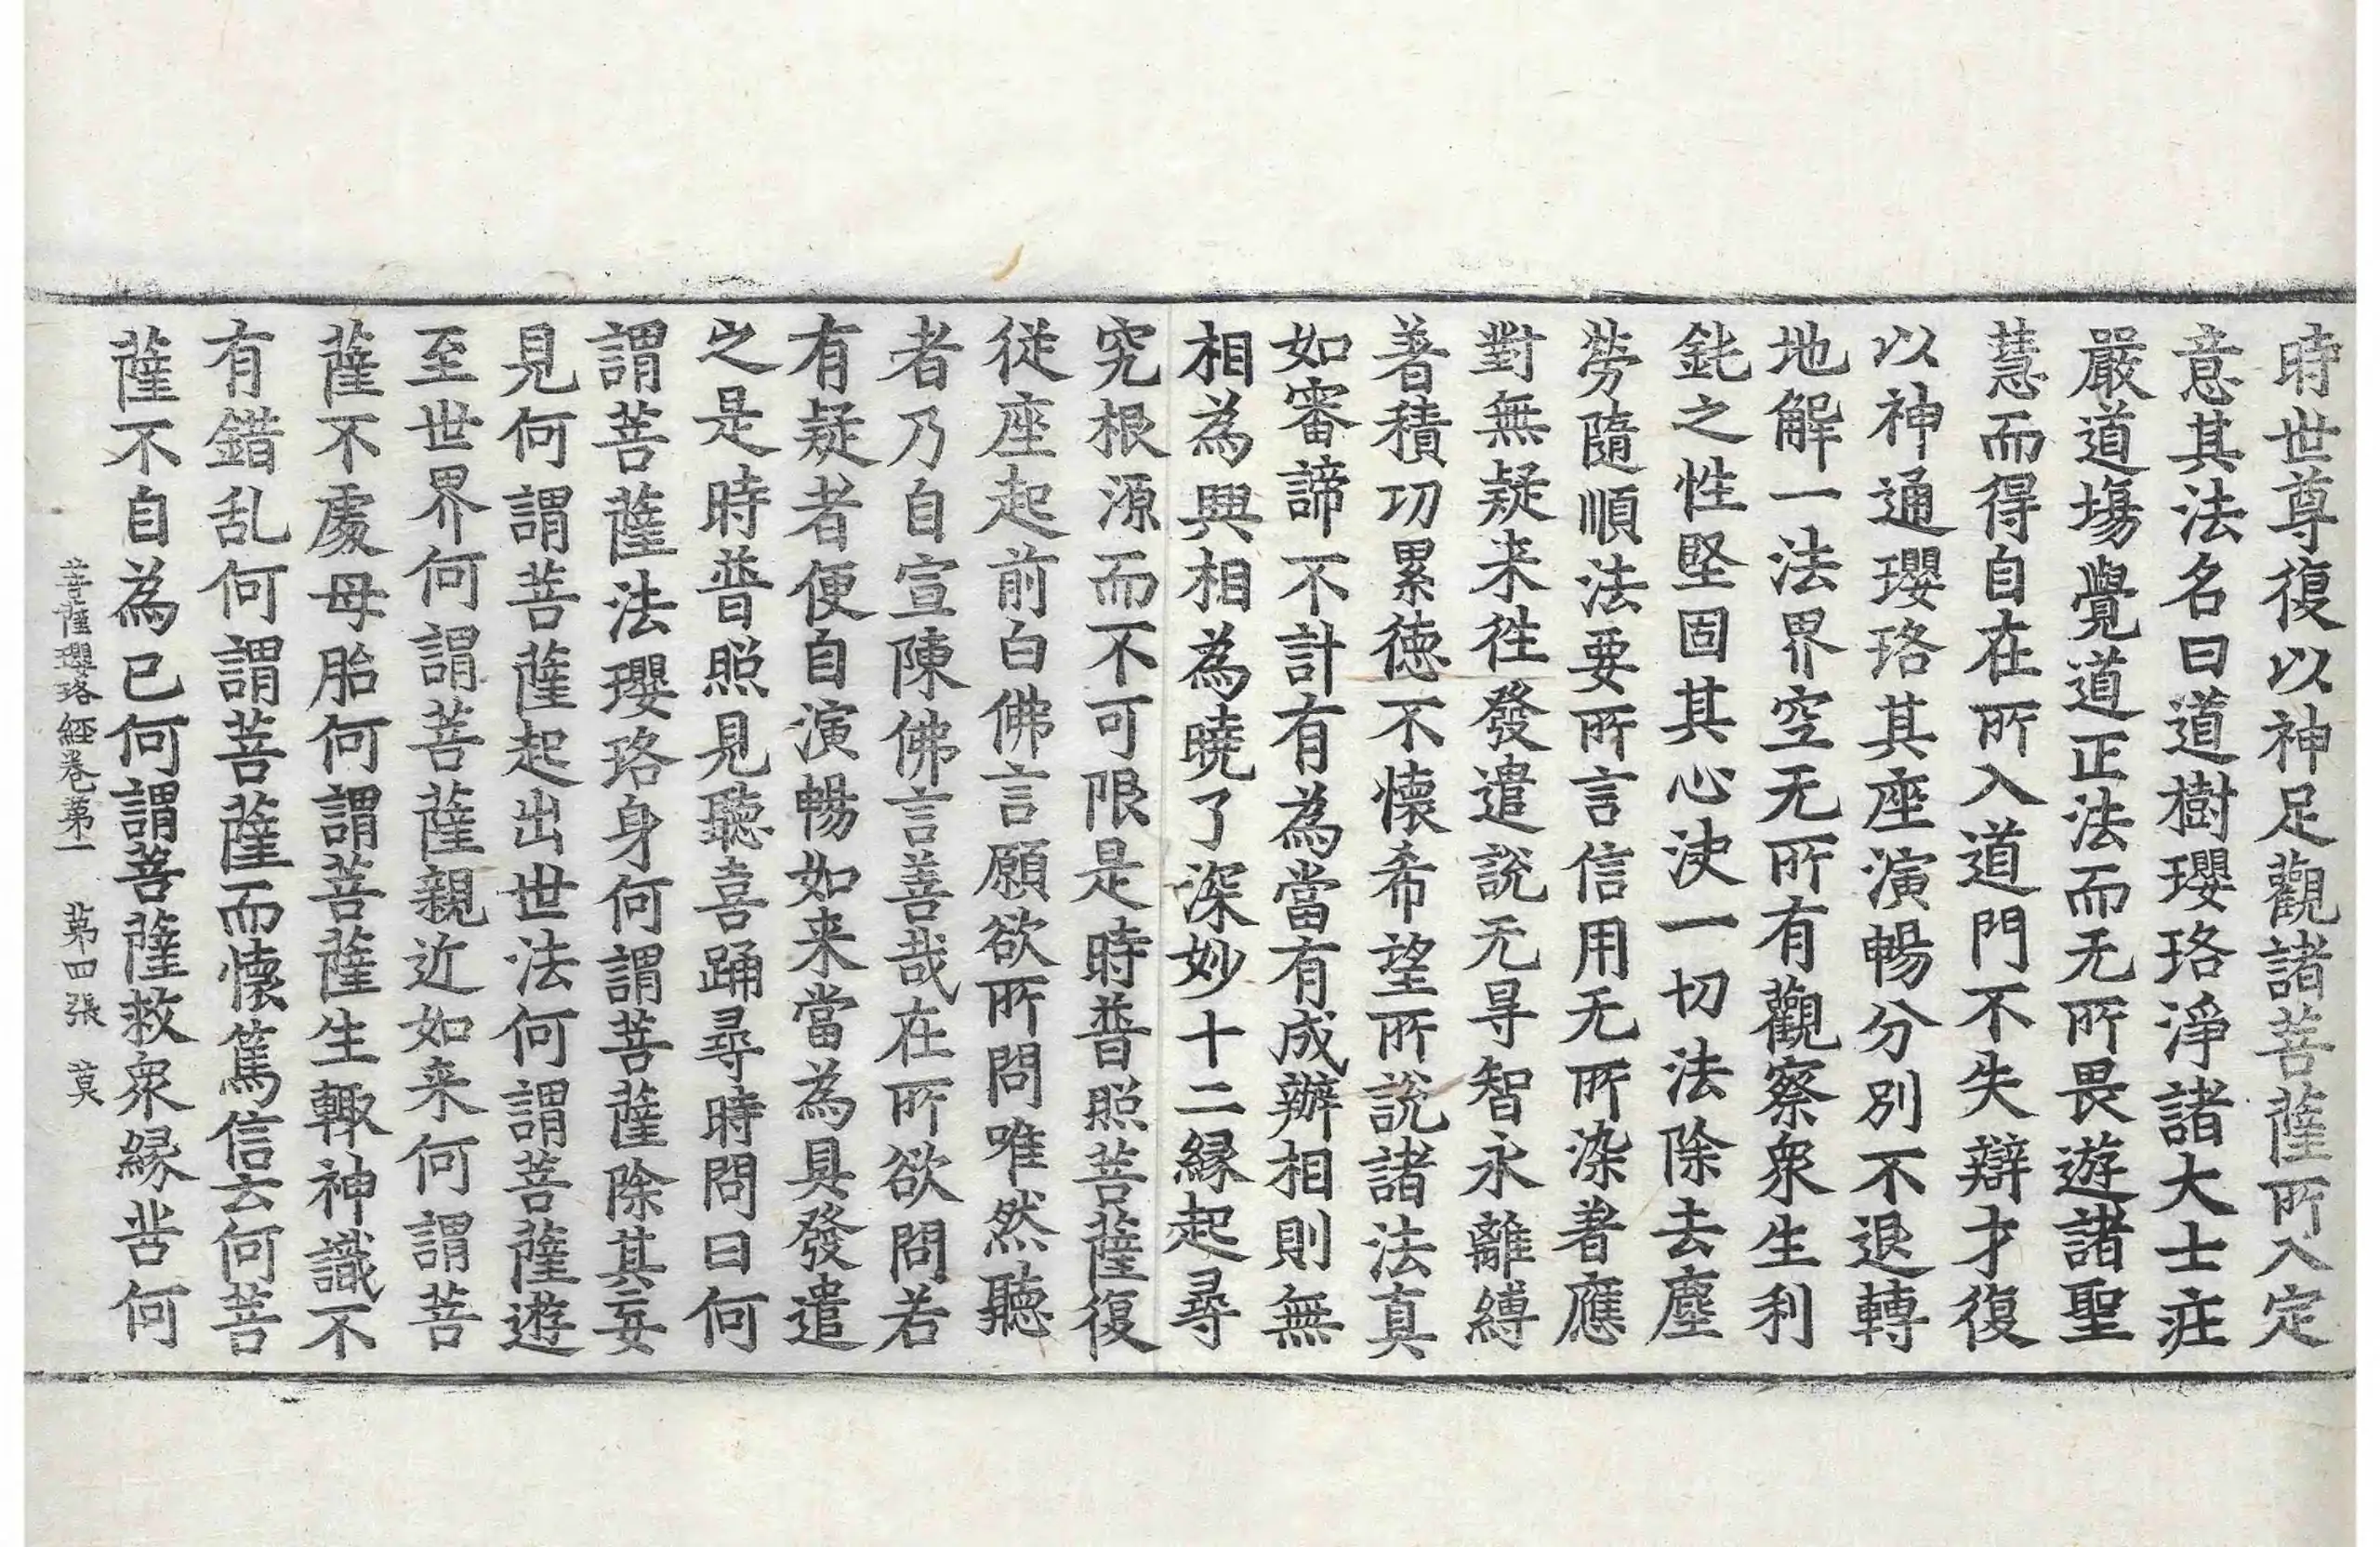 時世尊復以神足觀諸菩薩所入定
意其法名曰道樹瓔珞淨諸大士庄
嚴道場覺道正法而无所畏遊諸聖
慧而得自在所入道門不失辯才復
以神通瓔珞其座演暢分別不退轉
地解一法界空无所有觀察衆生利
鈍之性堅固其心決一切法除去塵
勞隨順法要所言信用无所染著應
對無疑来往發遣說无㝵智永離縛
著積功累德不懷希望所說諸法真
如審諦不計有為當有成辦相則無
相為興相為曉了深妙十二縁起尋
究根源而不可限是時普照菩薩復
從座起前白佛言願欲所問唯然聽
者乃自宣陳佛言善哉在所欲問若
有疑者便自演暢如来當為具發遣
之是時普照見聽喜踊尋時問曰何
謂菩薩法瓔珞身何謂菩薩除其妄
見何謂菩薩起出世法何謂菩薩遊
至世界何謂菩薩親近如来何謂菩
薩不處母胎何謂菩薩生輙神識不
有錯乱何謂菩薩而懷篤信云何菩
薩不自為已何謂菩薩救衆縁甞何
菩薩瓔珞經卷第一 苐四張 莫